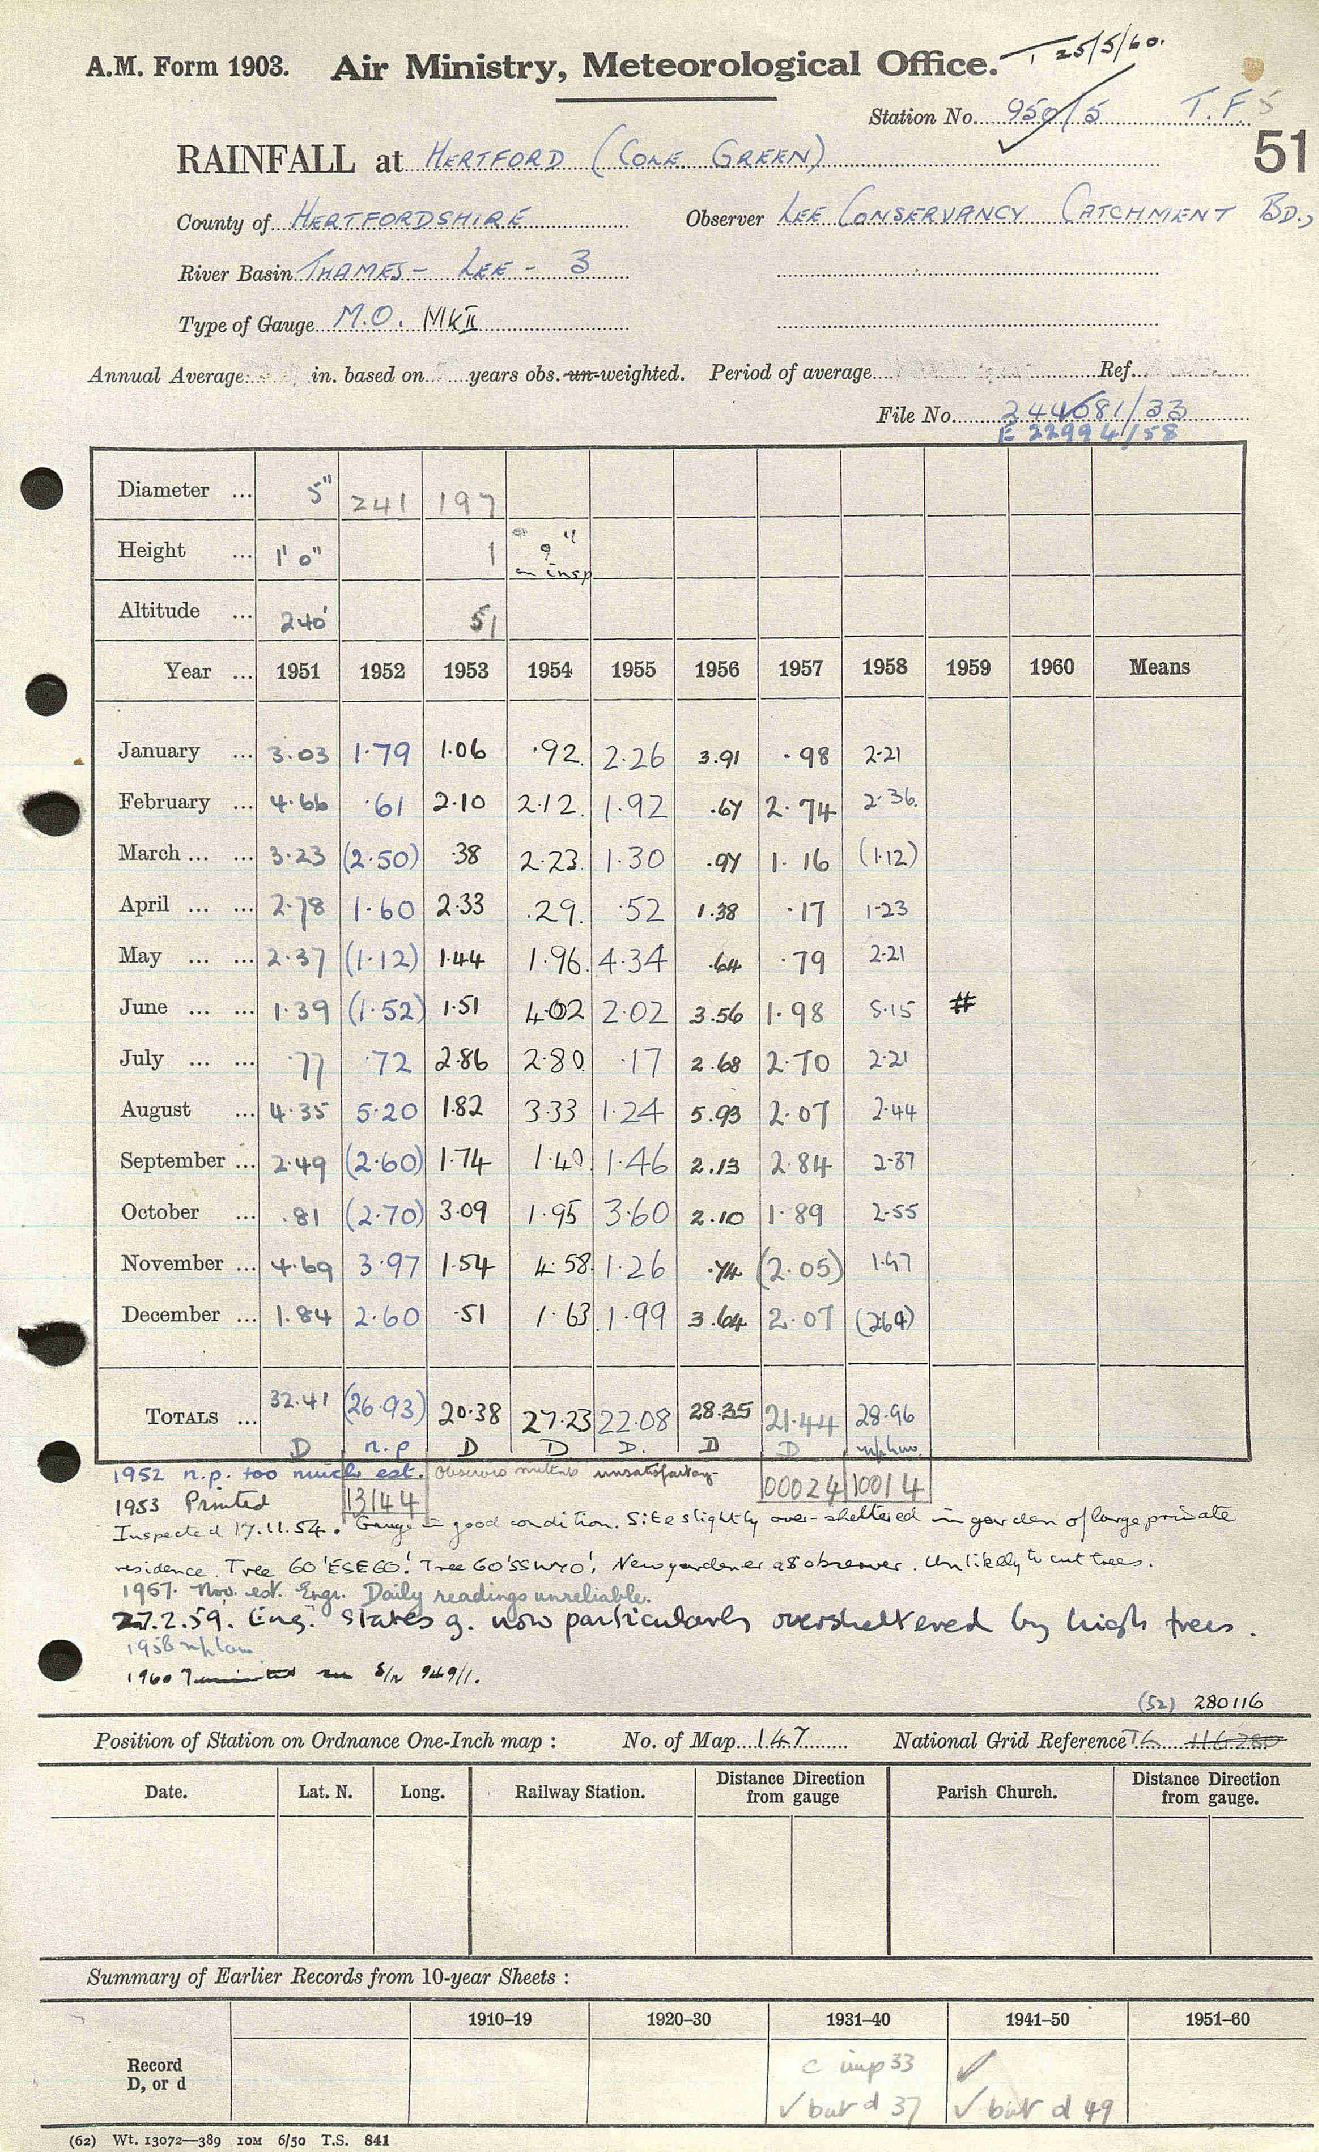 T 25/5/60.
A.M. Form 1903. Air Ministry, Meteorological Office.
Station No. 950/5 T.F. 5
RAINFALL at HERTFORD (COLE GREEN) 51
County of HERTFORDSHIRE Observer LEE CONSERVANCY CATCHMENT BD.,
River Basin THAMES - LEE - 3
Type of Gauge M.O. MK II
Annual Average in. based on years obs. un-weighted. Period of average Ref.
File No. 244081/33
E 22994/58
Diameter ... 5" 241 197
Height ... 1' 0" 1 9"
on insp
Altitude ... 240' 51
Year ... 1951 1952 1953 1954 1955 1956 1957 1958 1959 1960 Means
January ... 3.03 1.79 1.06 .92 2.26 3.91 .98 2.21
February ... 4.66 .61 2.10 2.12 1.92 .67 2.74 2.36
March ... ... 3.23 (2.50) .38 2.23 1.30 .97 1.16 (1.12)
April ... ... 2.78 1.60 2.33 .29 .52 1.38 .17 1.23
May ... ... 2.37 (1.12) 1.44 1.96 4.34 .64 .79 2.21
June ... ... 1.39 (1.52) 1.51 4.02 2.02 3.56 1.98 5.15 #
July ... ... .77 .72 2.86 2.80 .17 2.68 2.70 2.21
August ... 4.35 5.20 1.82 3.33 1.24 5.93 2.07 2.44
September ... 2.49 (2.60) 1.74 1.40 1.46 2.13 2.84 2.87
October ... .81 (2.70) 3.09 1.95 3.60 2.10 1.89 2.55
November ... 4.69 3.97 1.54 4.58 1.26 .74 (2.05) 1.97
December ... 1.84 2.60 .51 1.63 1.99 3.64 2.07 (2.64)
TOTALS ... 32.41 (26.93) 20.38 27.23 22.08 28.35 21.44 28.96
D n.p D D D. D D
1952 n.p. too much est. unsatisfactory
1953 Printed 13144 00024 10014
Inspected 17.11.54. Gauge in good condition. Site slightly over-sheltered in garden of large private
residence. Tree 60' ESE 60'. Tree 60' SSW 40'. New gardener as observer. Unlikely to cut trees.
1957. Nov. est. Engr. Daily readings unreliable.
27.2.59. Eng. states g. now particularly oversheltered by high trees.
1958
1960 Terminated see S/n 949/1.
(52) 280116
Position of Station on Ordnance One-Inch map : No. of Map 147 National Grid Reference TL 116280
Date. Lat. N. Long. Railway Station. Distance Direction from gauge Parish Church. Distance Direction from gauge.
Summary of Earlier Records from 10-year Sheets :
1910–19 1920–30 1931–40 1941–50 1951–60
Record c imp 33 ✓
D, or d ✓ but d 37 ✓ but d 49
(62) Wt. 13072—389 10M 6/50 T.S. 841